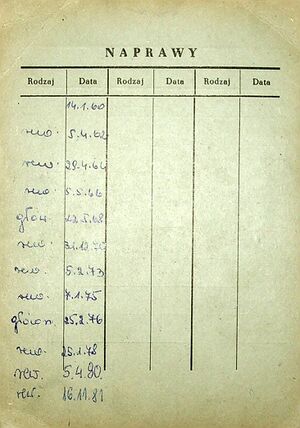 NAPRAWY
Rodzaj Data Rodzaj Data Rodzaj Data
14.1.60
rew. 5.4.62
rew. 29.4.64
rew. 5.5.66
główn. 22.5.68
rew. 31.12.70
rew. 5.2.73
rew. 7.1.75
główn. 25.2.76
rew. 25.1.78
rew. 5.4.80.
rew. 16.11.81